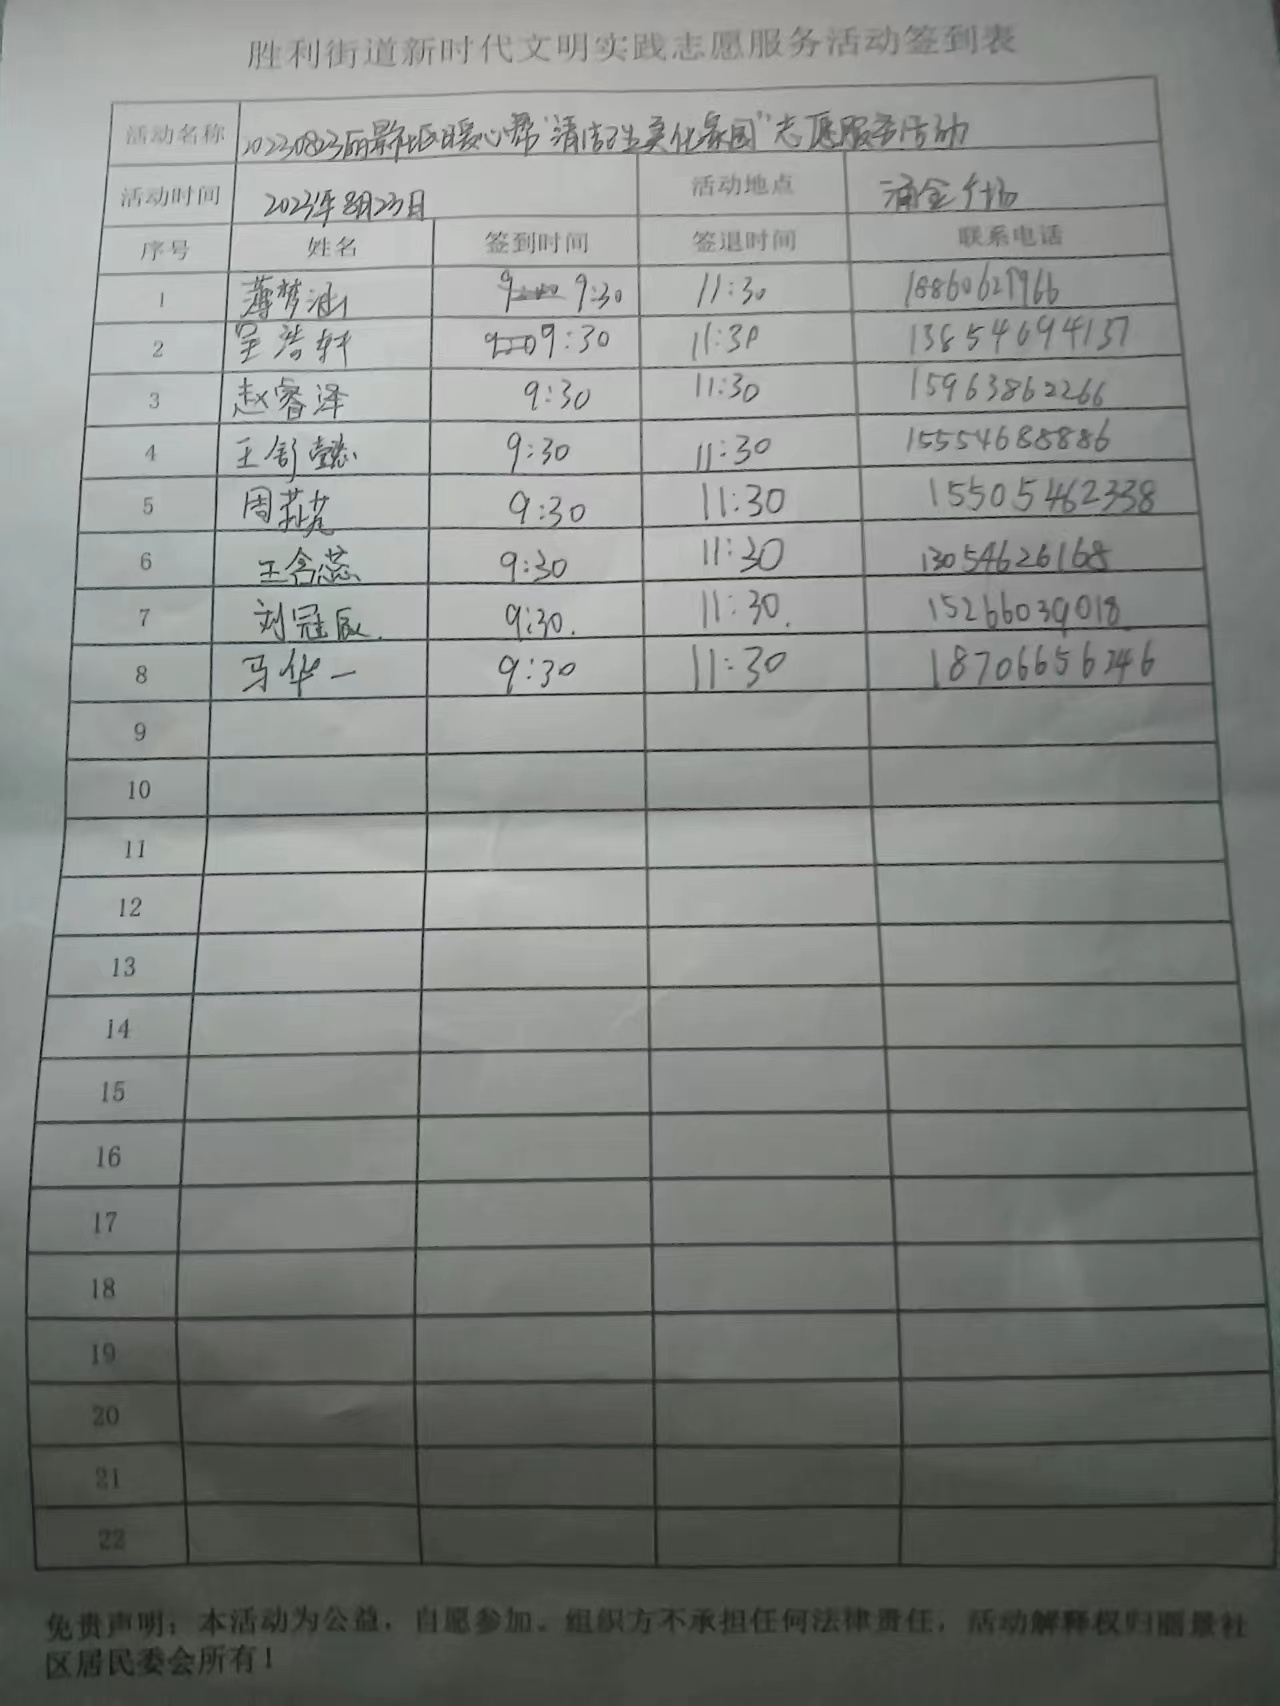 胜利街道新时代文明实践志愿服务活动签到表
活动名称 20230823丽景社区暖心帮“清洁卫生美化家园”志愿服务活动
活动时间 2023年8月23日 活动地点 涌金广场
序号 姓名 签到时间 签退时间 联系电话
1 薄梦涵 9:30 11:30 18860627966
2 吴浩轩 9:30 11:30 13854694137
3 赵睿泽 9:30 11:30 15963862266
4 王舒懿 9:30 11:30 15554688886
5 周芸芃 9:30 11:30 15505462338
6 王含蕊 9:30 11:30 13054626168
7 刘冠辰. 9:30. 11:30. 15266039018
8 马华一 9:30 11:30 18706656246
9
10
11
12
13
14
15
16
17
18
19
20
21
22
免责声明：本活动为公益，自愿参加、组织方不承担任何法律责任，活动解释权归丽景社
区居民委会所有！